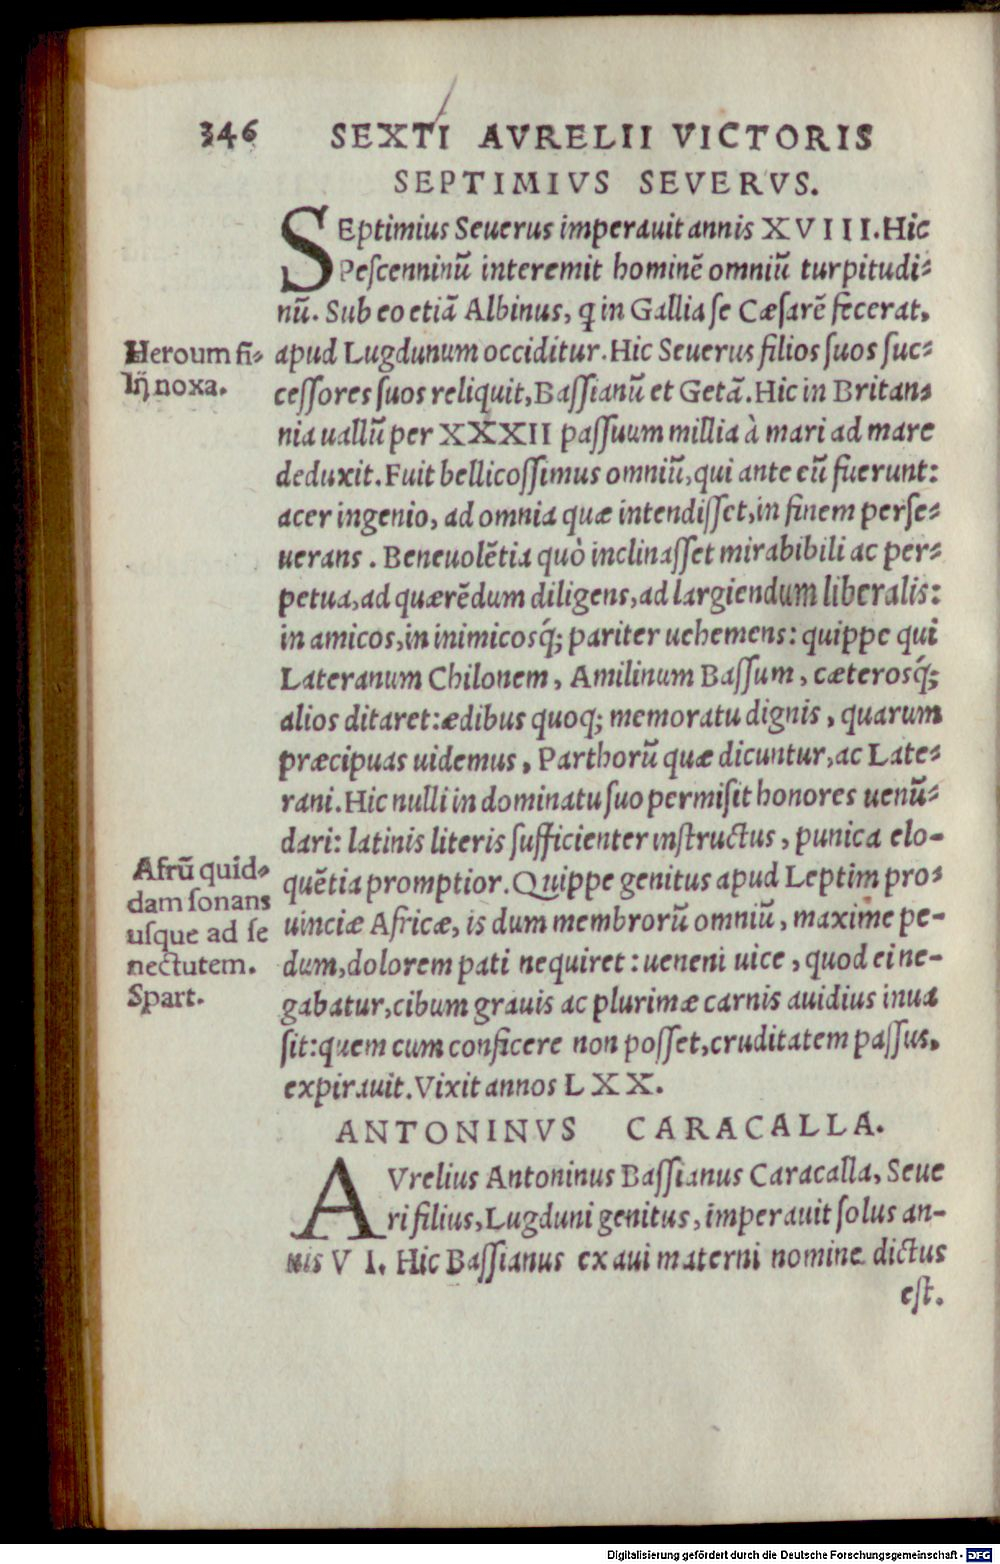 346 SEXTI AVRELII VICTORIS
SEPTIMIVS SEVERVS.
SEptimius Seuerus imperauit annis XVIII. Hic
Pescenninū interemit hominē omniū turpitudi-
nū. Sub eo etiā Albinus, q in Gallia se Cæsarē fecerat,
apud Lugdunum occiditur. Hic Seuerus filios suos suc-
cessores suos reliquit, Bassianū et Getā. Hic in Britan-
nia uallū per XXXII passuum millia à mari ad mare
deduxit. Fuit bellicossimus omniū, qui ante eū fuerunt:
acer ingenio, ad omnia quæ intendisset, in finem perse-
uerans. Beneuolētia quò inclinasset mirabibili ac per-
petua, ad quærēdum diligens, ad largiendum liberalis:
in amicos, in inimicosq́; pariter uehemens: quippe qui
Lateranum Chilonem, Amilinum Bassum, cæterosq́;
alios ditaret: ædibus quoq; memoratu dignis, quarum
præcipuas uidemus, Parthorū quæ dicuntur, ac Late-
rani. Hic nulli in dominatu suo permisit honores uenū-
dari: latinis literis sufficienter instructus, punica elo-
quētia promptior. Quippe genitus apud Leptim pro-
uinciæ Africæ, is dum membrorū omniū, maxime pe-
dum, dolorem pati nequiret: ueneni uice, quod ei ne-
gabatur, cibum grauis ac plurimæ carnis auidius inua
sit: quem cum conficere non posset, cruditatem passus,
expirauit. Vixit annos LXX.
Heroum fi-
lĳ noxa.
Afrū quid-
dam sonans
usque ad se
nectutem.
Spart.
ANTONINVS CARACALLA.
AVrelius Antoninus Bassianus Caracalla, Seue
ri filius, Lugduni genitus, imperauit solus an-
nis VI. Hic Bassianus ex aui materni nomine dictus
est.
Digitalisierung gefördert durch die Deutsche Forschungsgemeinschaft - DFG